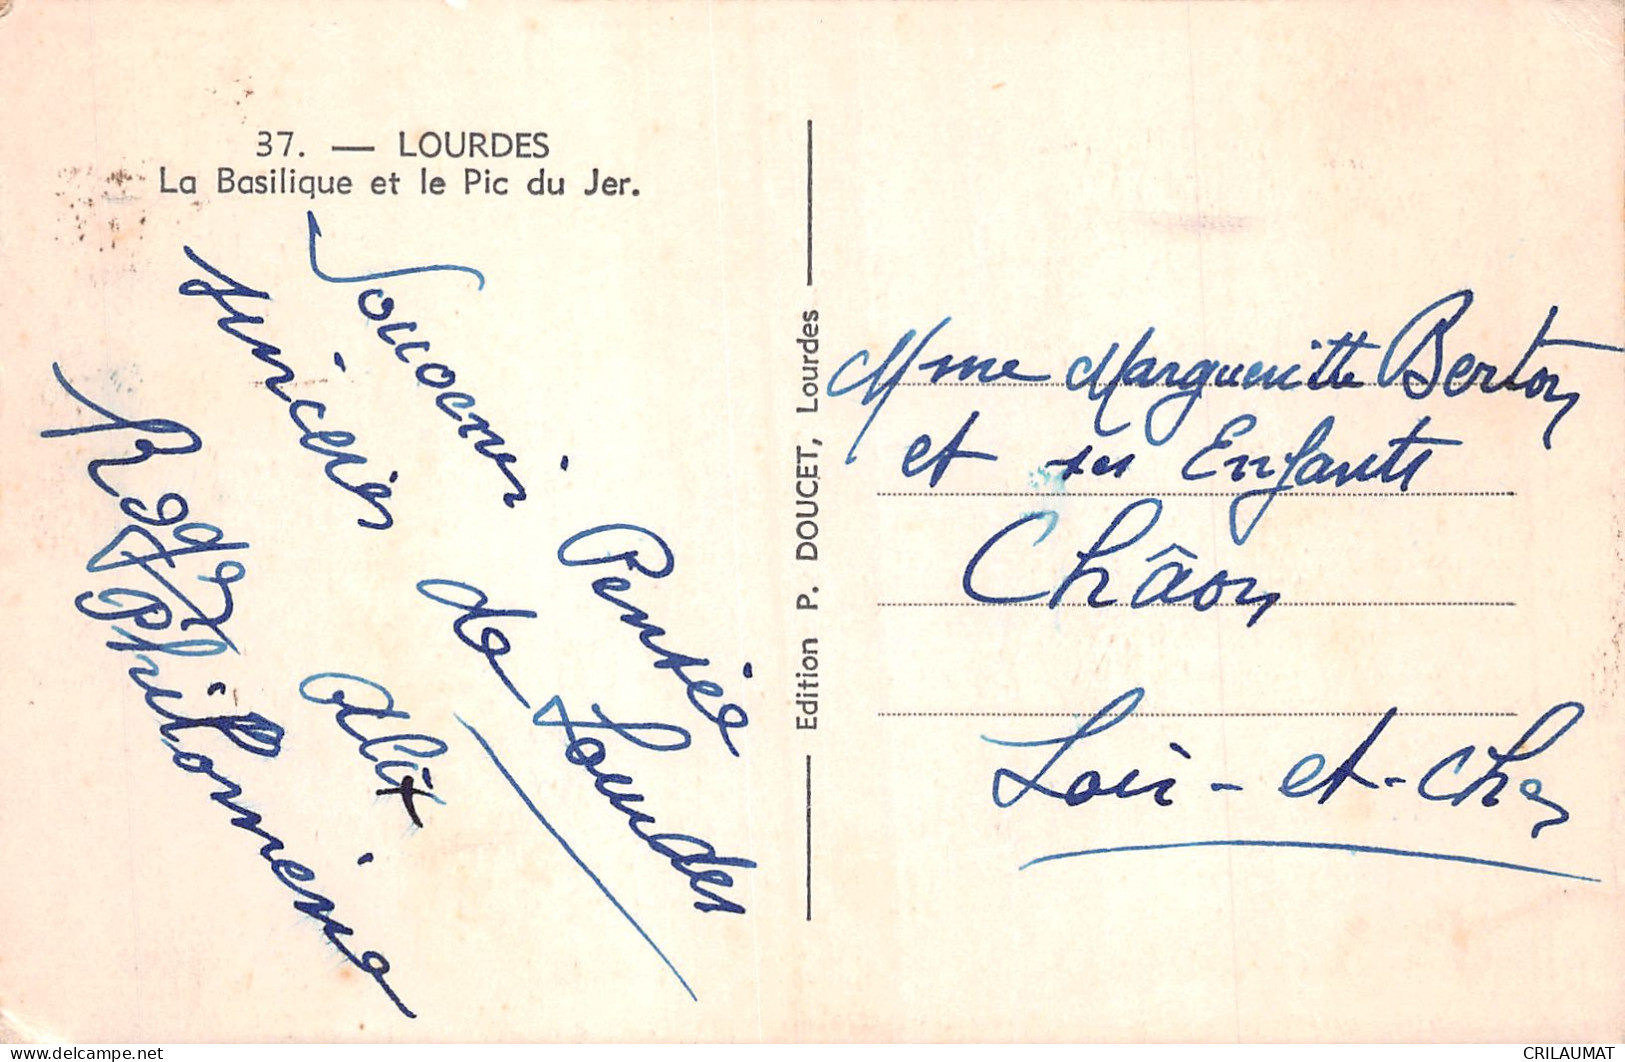 37. — LOURDES
La Basilique et le Pic du Jer.
Souvenir Pensée
sincères de Lourdes
Roger Alix
Philomène
Edition P. DOUCET, Lourdes
Mme Marguerite Berton
et ses Enfants
Châon
Loir-et-Cher
CRILAUMAT